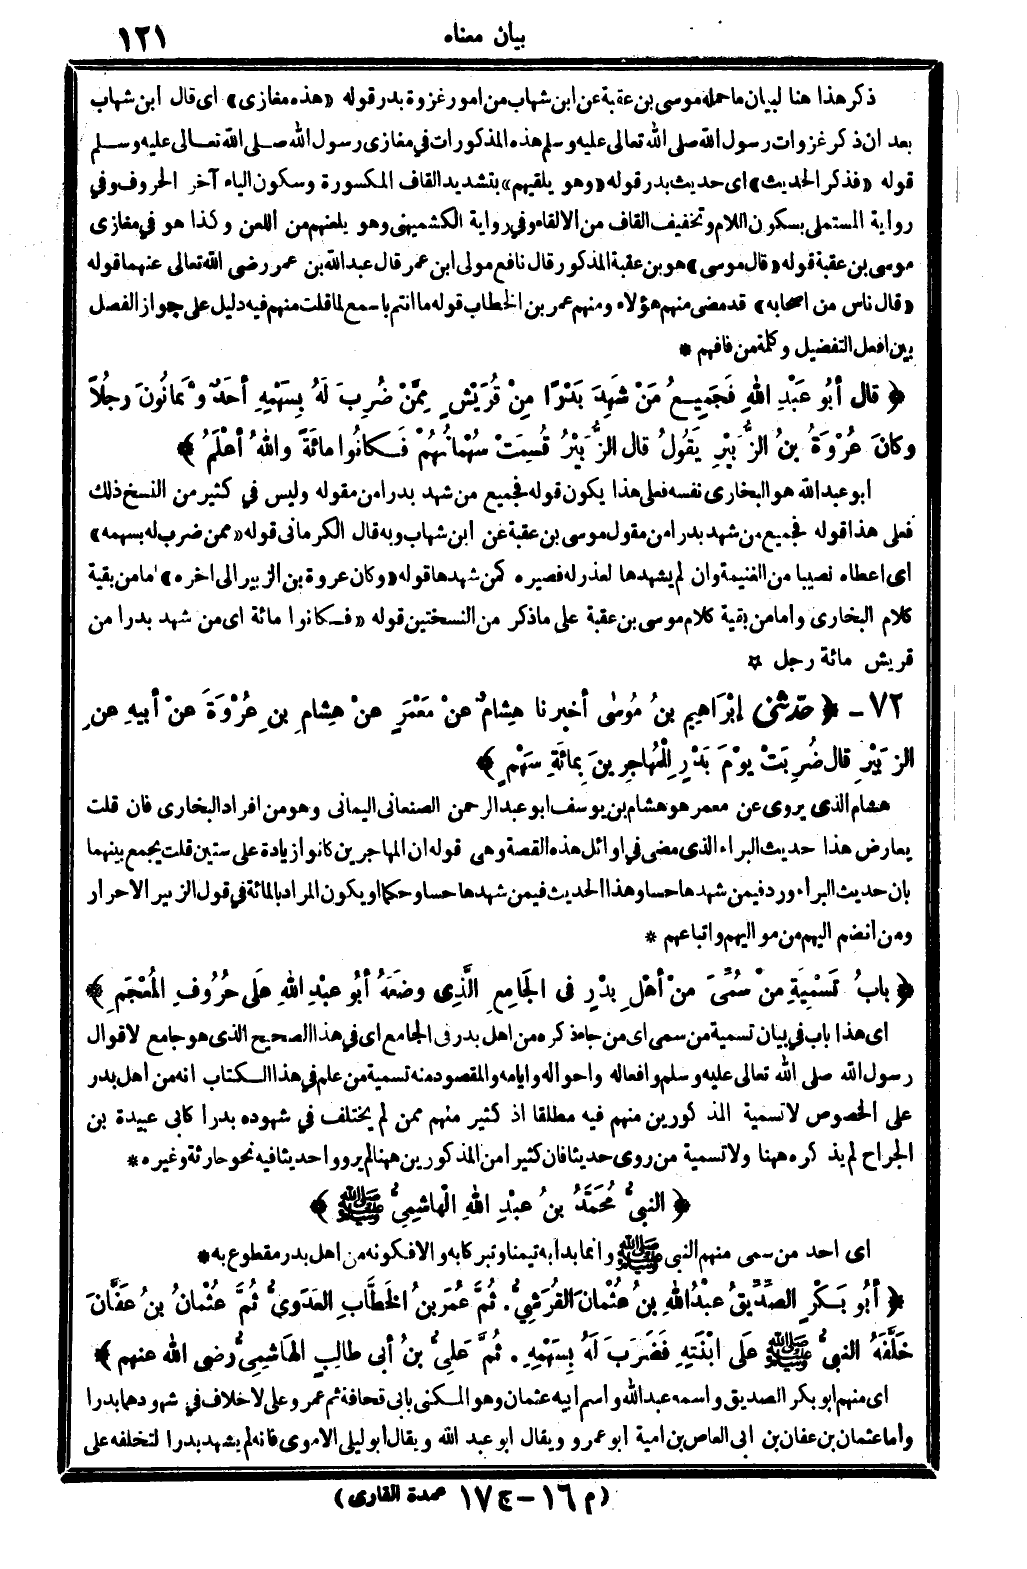 بيان معناه ١٢١
ذكر هذا هنا لبيان ما حمله موسى بن عقبة عن ابن شهاب من امور غزوة بدر قوله «هذه مغازى» اى قال ابن شهاب
بعد ان ذكر غزوات رسول الله صلى الله تعالى عليه وسلم هذه المذكورات في مغازى رسول الله صلى الله تعالى عليه وسلم
قوله «فذكر الحديث» اى حديث بدر قوله «وهو يلقيهم» بتشديد القاف المكسورة وسكون الياء آخر الحروف وفي
رواية المستملى بسكون اللام وتخفيف القاف من الالقاء وفي رواية الكشميهنى وهو يلعنهم من اللعن وكذا هو في مغازى
موسى بن عقبة قوله «قال موسى» هو بن عقبة المذكور قال نافع مولى ابن عمر قال عبد الله بن عمر رضى الله تعالى عنهما قوله
«قال ناس من اصحابه» قد مضى منهم هؤلاء ومنهم عمر بن الخطاب قوله ما انتم باسمع لما قلت منهم فيه دليل على جواز الفصل
بين افعل التفضيل وكلمة من فافهم *
﴿ قال أبُو عَبْدِ اللهِ فَجَمِيعُ مَنْ شَهِدَ بَدْرًا مِنْ قُرَيْشٍ مِمَّنْ ضُرِبَ لَهُ بِسَهْمِهِ أحَدٌ وثَمانُونَ رجُلاً
وكانَ عُرْوَةُ بنُ الزُّبَيْرِ يَقُولُ قال الزُّبَيْرُ قُسِمَتْ سُهْمانُهُمْ فَكانُوا مائَةً واللهُ أعْلَمُ ﴾
ابو عبد الله هو البخارى نفسه فعلى هذا يكون قوله فجميع من شهد بدرا من مقوله وليس في كثير من النسخ ذلك
فعلى هذا قوله فجميع من شهد بدرا من مقول موسى بن عقبة عن ابن شهاب وبه قال الكرمانى قوله «ممن ضرب له بسهمه»
اى اعطاه نصيبا من الغنيمة وان لم يشهدها لعذر له فصيره كمن شهدها قوله «وكان عروة بن الزبير الى اخره» اما من بقية
كلام البخارى واما من بقية كلام موسى بن عقبة على ما ذكر من النسختين قوله «فكانوا مائة اى من شهد بدرا من
قريش مائة رجل ☆
٧٢ - ﴿ حدّثنى إبْرَاهِيم بنُ مُوسَى أخبرنا هِشامٌ عنْ مَعْمَرٍ عنْ هِشامِ بنِ عُرْوَةَ عنْ أبيهِ عنِ
الزُّبَيْرِ قال ضُرِبَتْ يوْمَ بَدْرٍ لِلْمُهاجِرِينَ بِمائَةِ سَهْمٍ ﴾
هشام الذى يروى عن معمر هو هشام بن يوسف ابو عبد الرحمن الصنعانى اليمانى وهو من افراد البخارى فان قلت
يعارض هذا حديث البراء الذى مضى في اوائل هذه القصة وهى قوله ان المهاجرين كانوا زيادة على ستين قلت يجمع بينهما
بان حديث البراء ورد فيمن شهدها حسا وهذا الحديث فيمن شهدها حسا وحكما او يكون المراد بالمائة في قول الزبير الاحرار
ومن انضم اليهم من مواليهم واتباعهم *
﴿ بابُ تَسْمِيَةِ مِنْ سُمِّىَ منْ أهْلِ بدْرٍ فى الجَامِعِ الَّذِى وضَعَهُ أبُو عبْدِ اللهِ علَى حرُوفِ المُعْجَمِ ﴾
اى هذا باب في بيان تسمية من سمى اى من جاء ذكره من اهل بدر فى الجامع اى في هذا الصحيح الذى هو جامع لاقوال
رسول الله صلى الله تعالى عليه وسلم وافعاله واحواله وايامه والمقصود منه تسمية من علم في هذا الكتاب انه من اهل بدر
على الخصوص لا تسمية المذكورين منهم فيه مطلقا اذ كثير منهم ممن لم يختلف في شهوده بدرا كابى عبيدة بن
الجراح لم يذكره ههنا ولا تسمية من روى حديثا فان كثيرا من المذكورين ههنا لم يرووا حديثا فيه نحو حارثة وغيره *
﴿ النبىُّ مُحَمَّدُ بنُ عبْدِ اللهِ الْهاشِمِىُّ ﷺ ﴾
اى احد من سمى منهم النبى ﷺ وانما بدأ به تيمنا وتبركا به والا فكونه من اهل بدر مقطوع به *
﴿ أبُو بَكْرٍ الصِّدِّيقُ عبْدُ اللهِ بنُ عُثْمانَ القُرَشِىُّ . ثُمَّ عُمَرُ بنُ الخَطَّابِ العَدَوِىُّ ثُمَّ عثْمانُ بنُ عَفَّانَ
خَلَّفَهُ النبىُّ ﷺ علَى ابْنَتِهِ فَضَرَبَ لَهُ بِسَهْمِهِ . ثُمَّ علِىُّ بنُ أبى طالِبٍ الهَاشِمِىُّ رضى الله عنهم ﴾
اى منهم ابو بكر الصديق واسمه عبد الله واسم ابيه عثمان وهو المكنى بابى قحافة ثم عمر وعلى لا خلاف في شهودهما بدرا
واما عثمان بن عفان بن ابى العاص بن امية ابو عمرو ويقال ابو عبد الله ويقال أبو ليلى الاموى فانه لم يشهد بدرا لتخلفه على
(م ١٦ - ج ١٧ عمدة القارى)